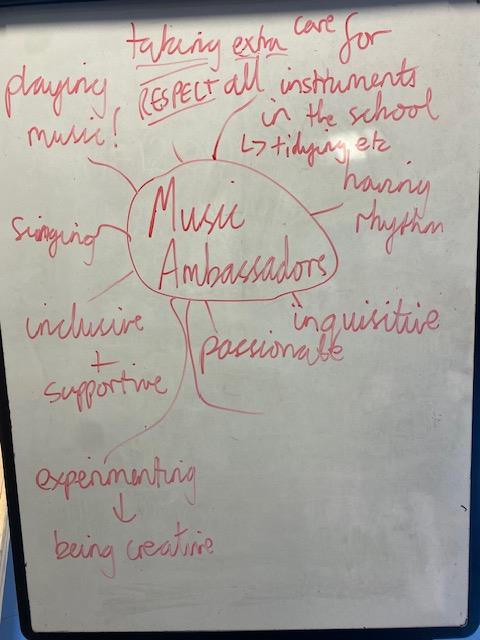 taking extra care for
RESPECT all instruments
in the school
↳ tidying etc
playing
music!
having
rhythm
Music
Ambassadors
singing
inclusive
+
supportive
inquisitive
passionate
experimenting
↓
being creative